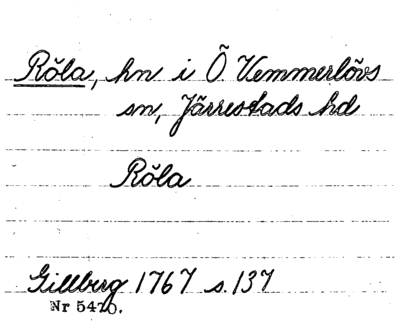 Röla, hn i Ö Vemmerlövs
sn, Järrestads hd
Röla
Gillberg 1767 s. 137
Nr 5420.